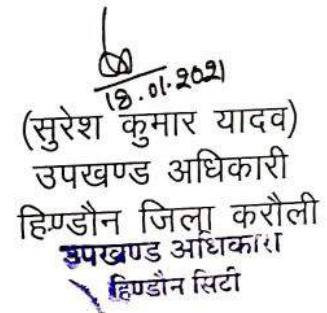 18.01.2021
(सुरेश कुमार यादव)
उपखण्ड अधिकारी
हिण्डौन जिला करौली
उपखण्ड अधिकारी
हिण्डौन सिटी